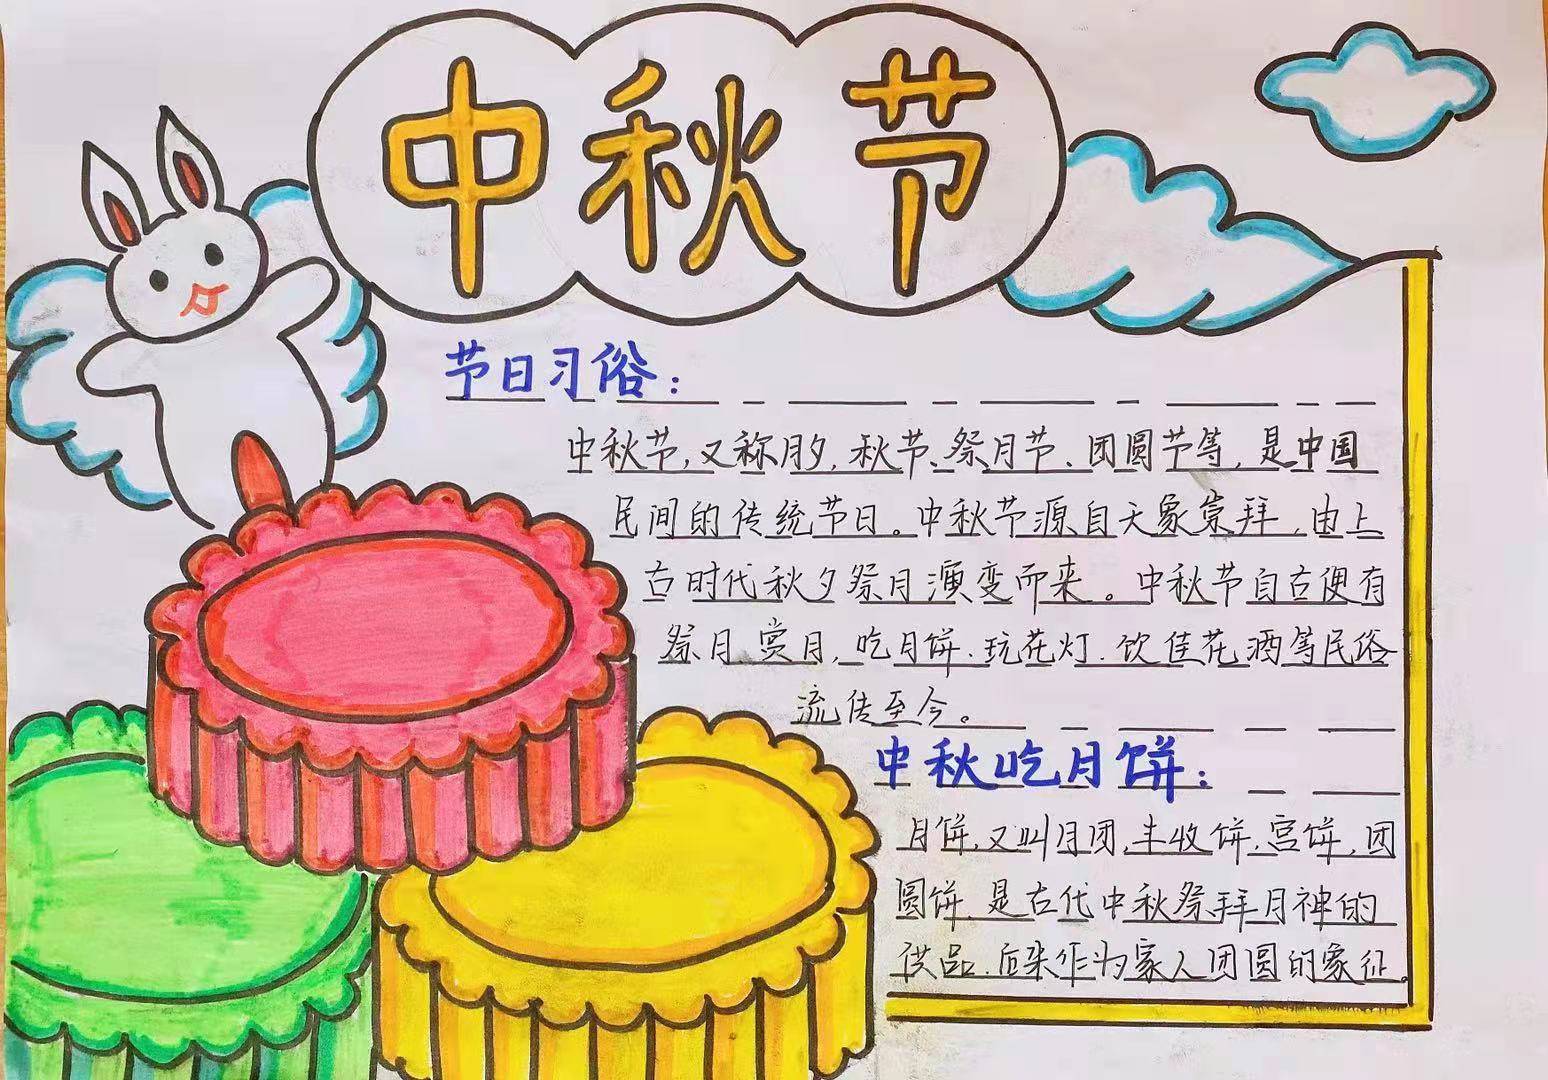 中秋节
节日习俗：
中秋节，又称月夕，秋节、祭月节、团圆节等，是中国
民间的传统节日。中秋节源自天象崇拜，由上
古时代秋夕祭月演变而来。中秋节自古便有
祭月、赏月，吃月饼、玩花灯、饮佳花酒等民俗
流传至今。
中秋吃月饼：
月饼，又叫月团，丰收饼，宫饼，团
圆饼，是古代中秋祭拜月神的
供品，后来作为家人团圆的象征。